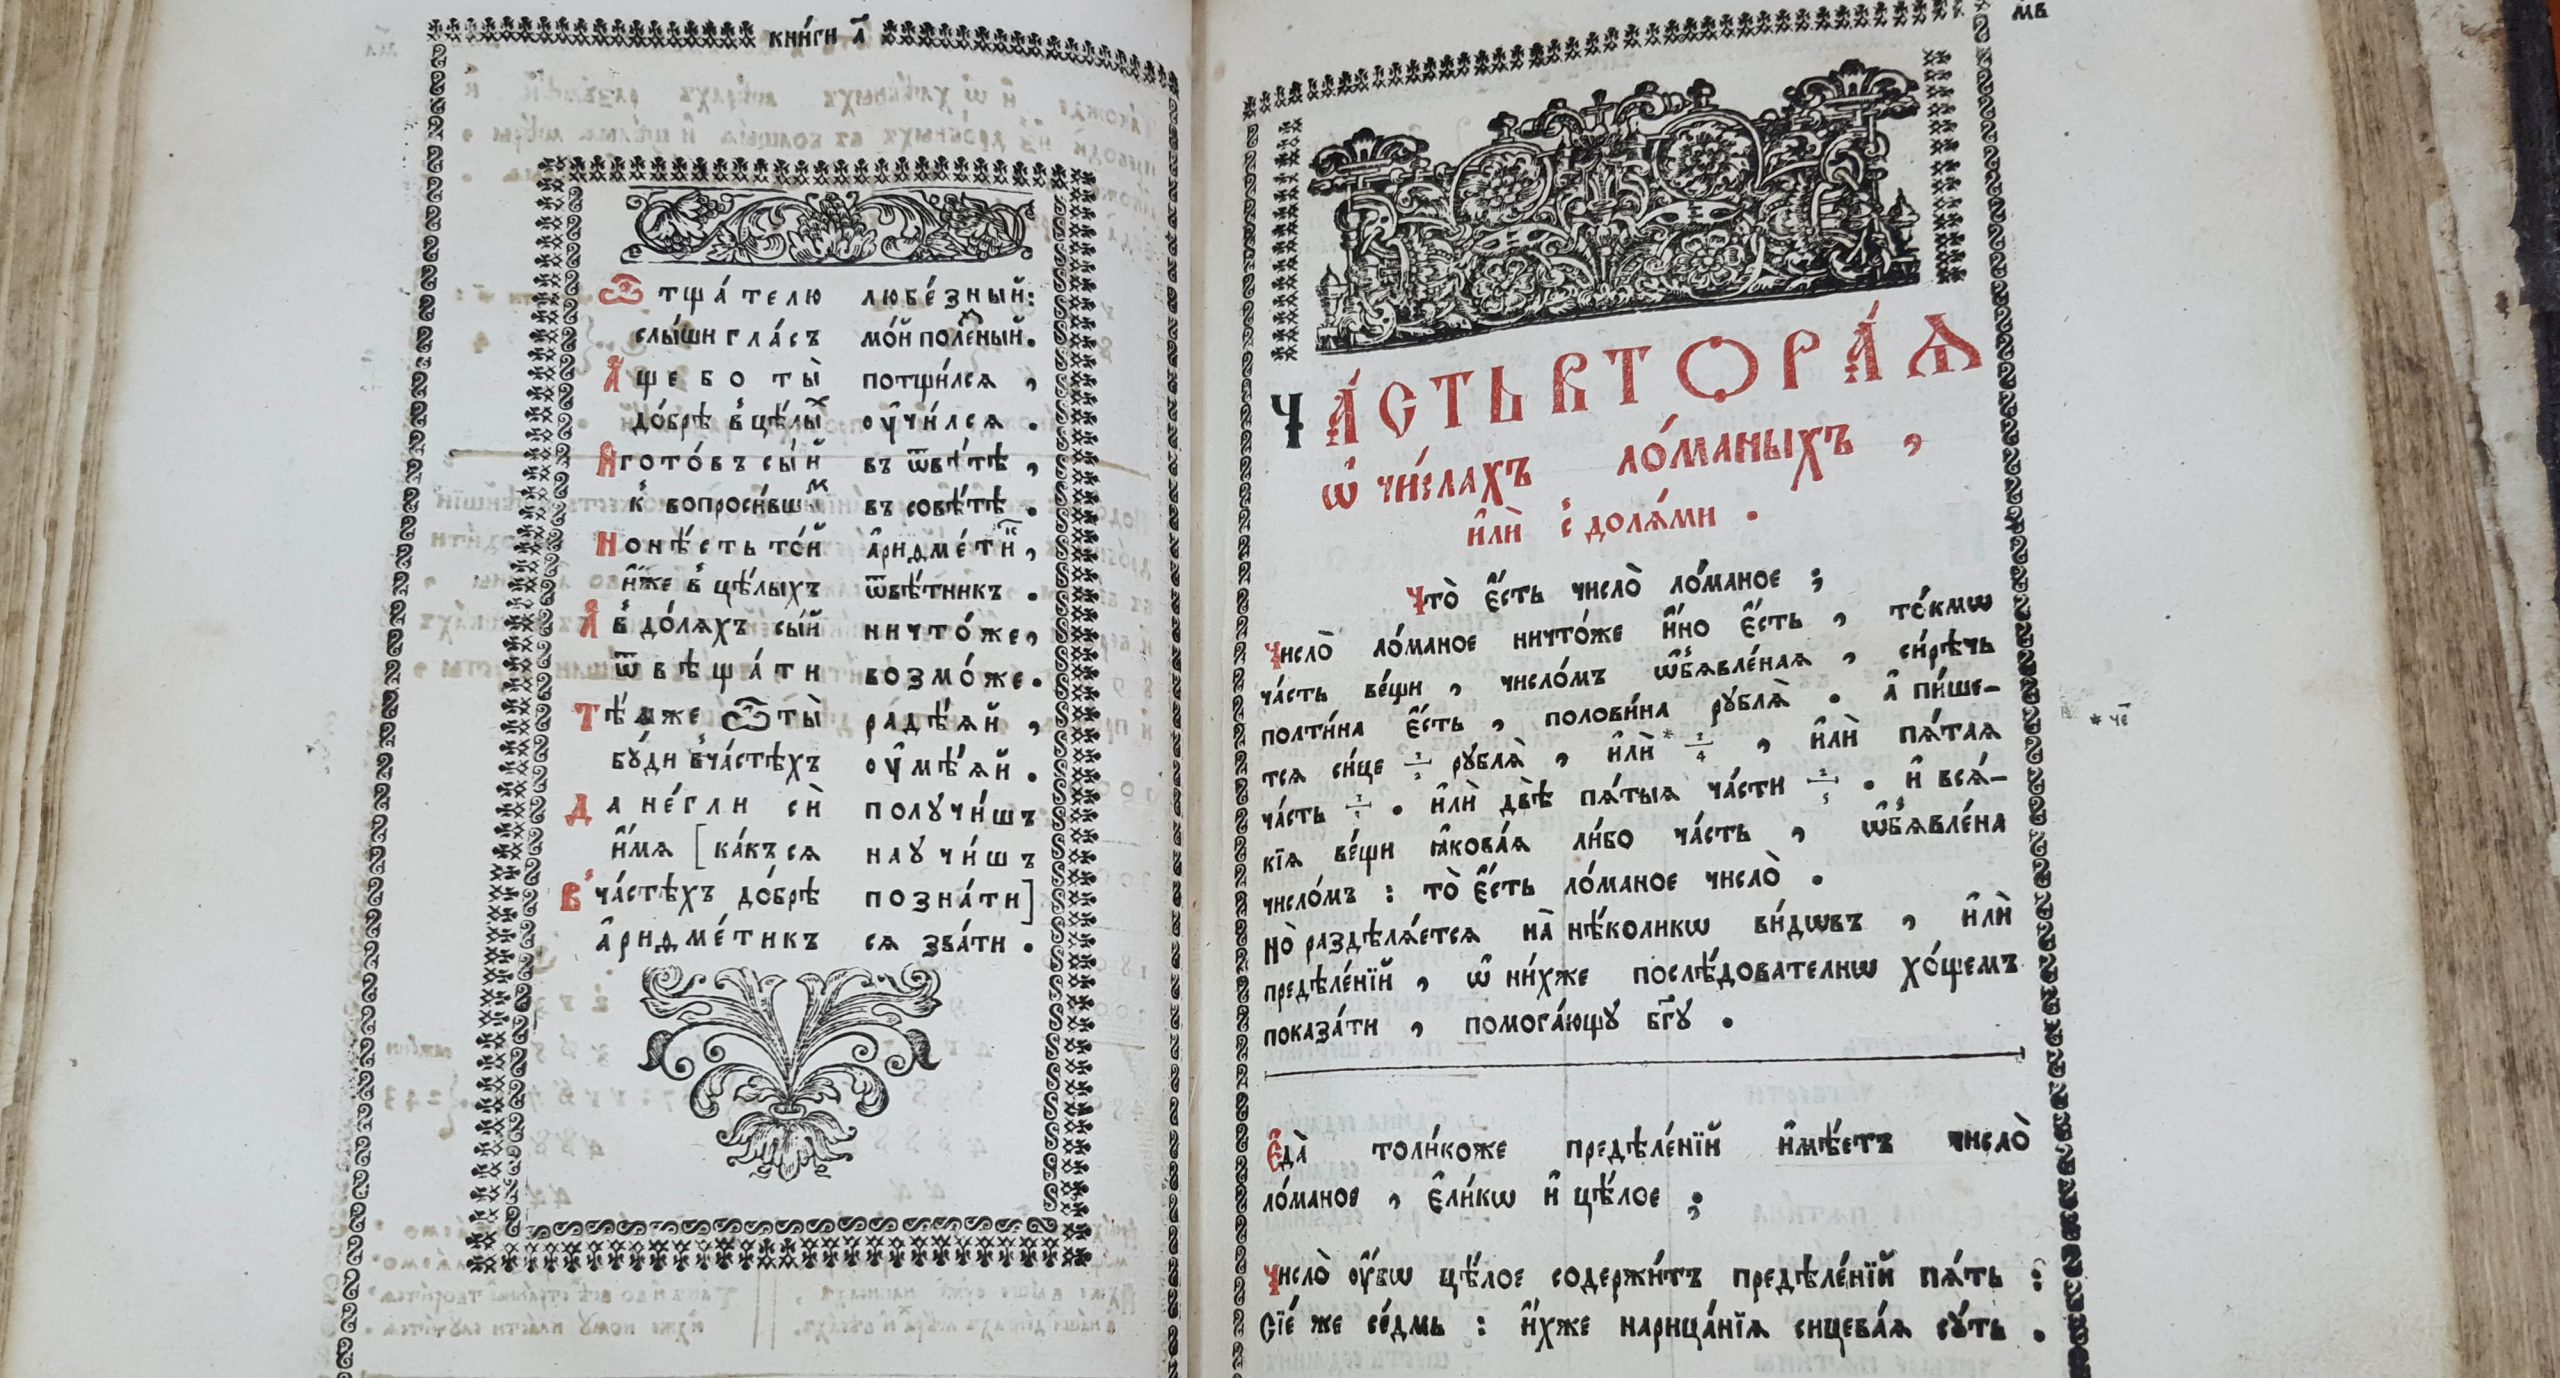 кни́ги а҃
Ѽ тща́телю любе́зный:
слы́ши гла́съ мо́й поле́зный.
А҆́ще бо ты̀ потщи́лся,
до́брѣ в̾ цѣ́лыⷯ ᲂу҆чи́лся.
И҆ гото́въ сы́й въ ѿвѣ́тѣ,
к̾ вопроси́вшыⷨ въ совѣ́тѣ.
Но нѣ́сть то́й а҆риѳме́тиⷦ҇,
и҆́же в̾ цѣ́лыхъ ѿвѣ́тникъ.
А҆ в̾ до́ляхъ сы́й ничто́же,
ѿвѣща́ти возмо́же.
Тѣ́мже ѽ ты̀ радѣ́яй,
бу́ди в̾ ча́стѣхъ ᲂу҆мѣ́яй.
Да не́гли сѝ получи́шъ
и҆́мя [ка́къ ся научи́шъ
В̾ ча́стѣхъ до́брѣ позна́ти]
а҆риѳме́тикъ ся зва́ти.
м҃в
ЧА́СТЬ ВТОРА́Ѧ
ѡ҆ чи́слахъ ло́маныхъ,
и҆лѝ с̾ доля́ми.
Что̀ є҆́сть число̀ ло́маное;
Число̀ ло́маное ничто́же и҆́но є҆́сть, то́кмѡ
ча́сть ве́щи, число́мъ ѡ҆б̾явле́ная, си́рѣчь
полти́на є҆́сть, полови́на рубля̀. а҆ пи́ше-
тся си́це 1/2 рубля̀, и҆лѝ * 1/4, и҆лѝ пя́тая
ча́сть 1/5. и҆лѝ двѣ̀ пя́тыя ча́сти 2/5. и҆ вся́-
кїя ве́щи ꙗ҆кова́я ли́бо ча́сть, ѡ҆б̾явле́на
число́мъ: то̀ є҆́сть ло́маное число̀.
* че҃
Но̀ раздѣля́ется на̀ нѣ́коликѡ ви́дѡвъ, и҆лѝ
предѣле́нїй, ѡ҆ ни́хже послѣ́дователнѡ хо́щемъ
показа́ти, помога́ющу бг҃у.
Є҆да̀ толи́коже предѣле́нїй и҆мѣ́етъ число̀
ло́маное, є҆ли́кѡ и҆ цѣ́лое;
Число̀ ᲂу҆́бѡ цѣ́лое содержи́тъ предѣле́нїй пя́ть:
Сїе́ же се́дмь: и҆́хже нарица́нїя сицева́я су́ть.